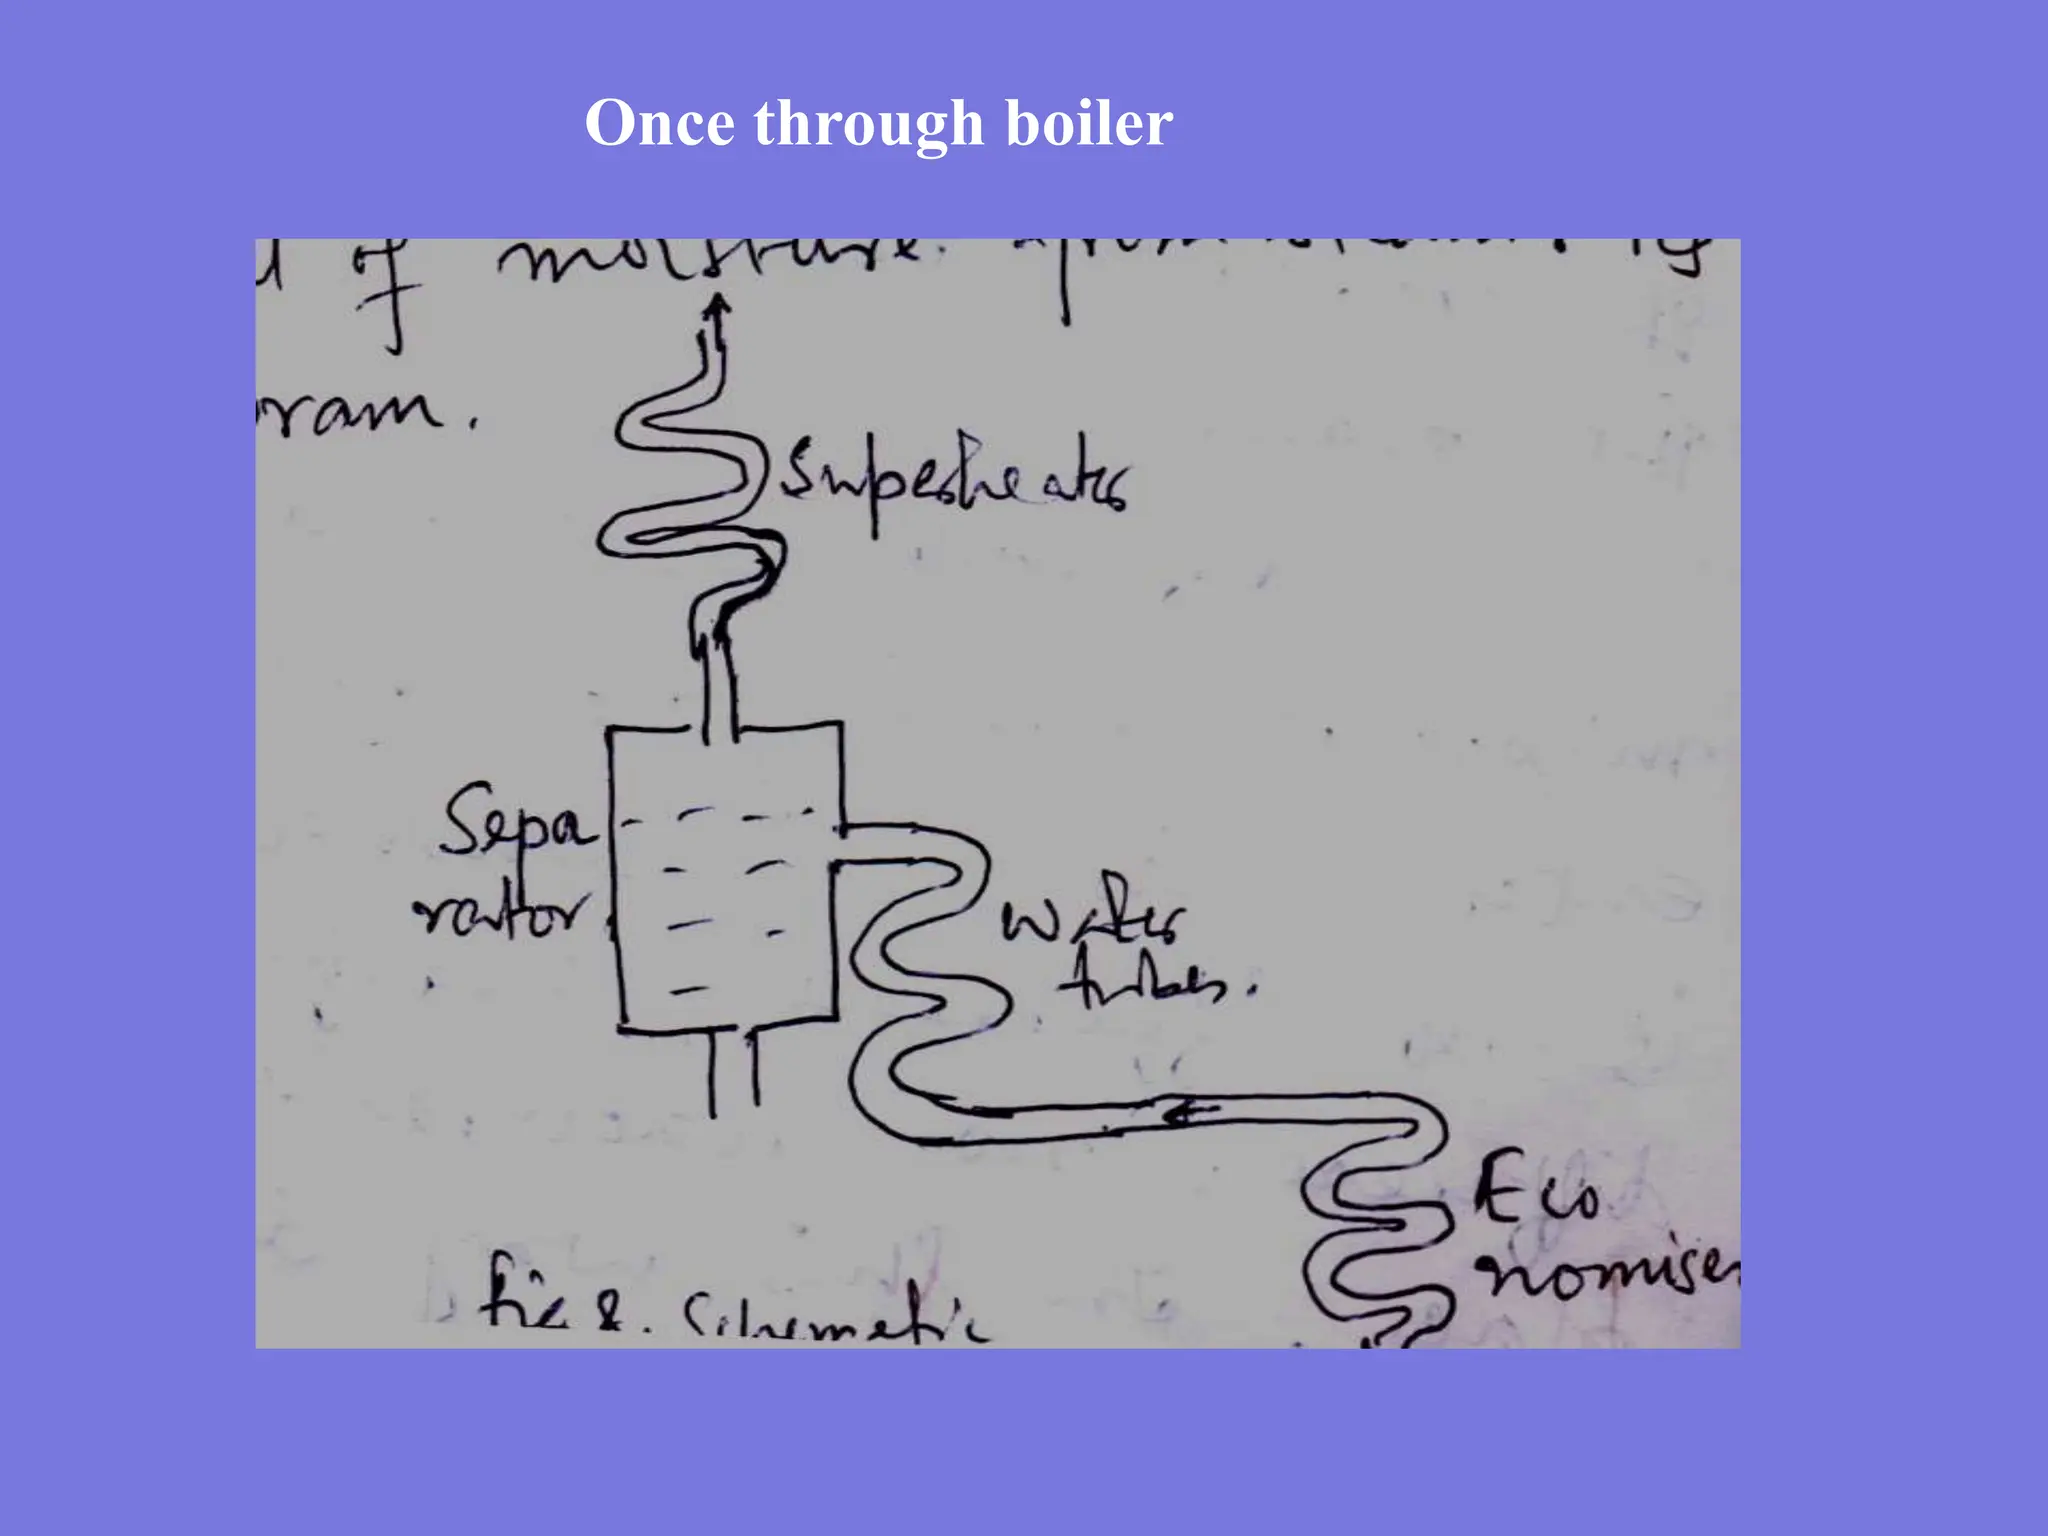 Once through boiler
of moisture. from steam.
ram.
Superheater
Sepa
rator
Water
tubes.
Eco
nomiser
fig 8. Schematic